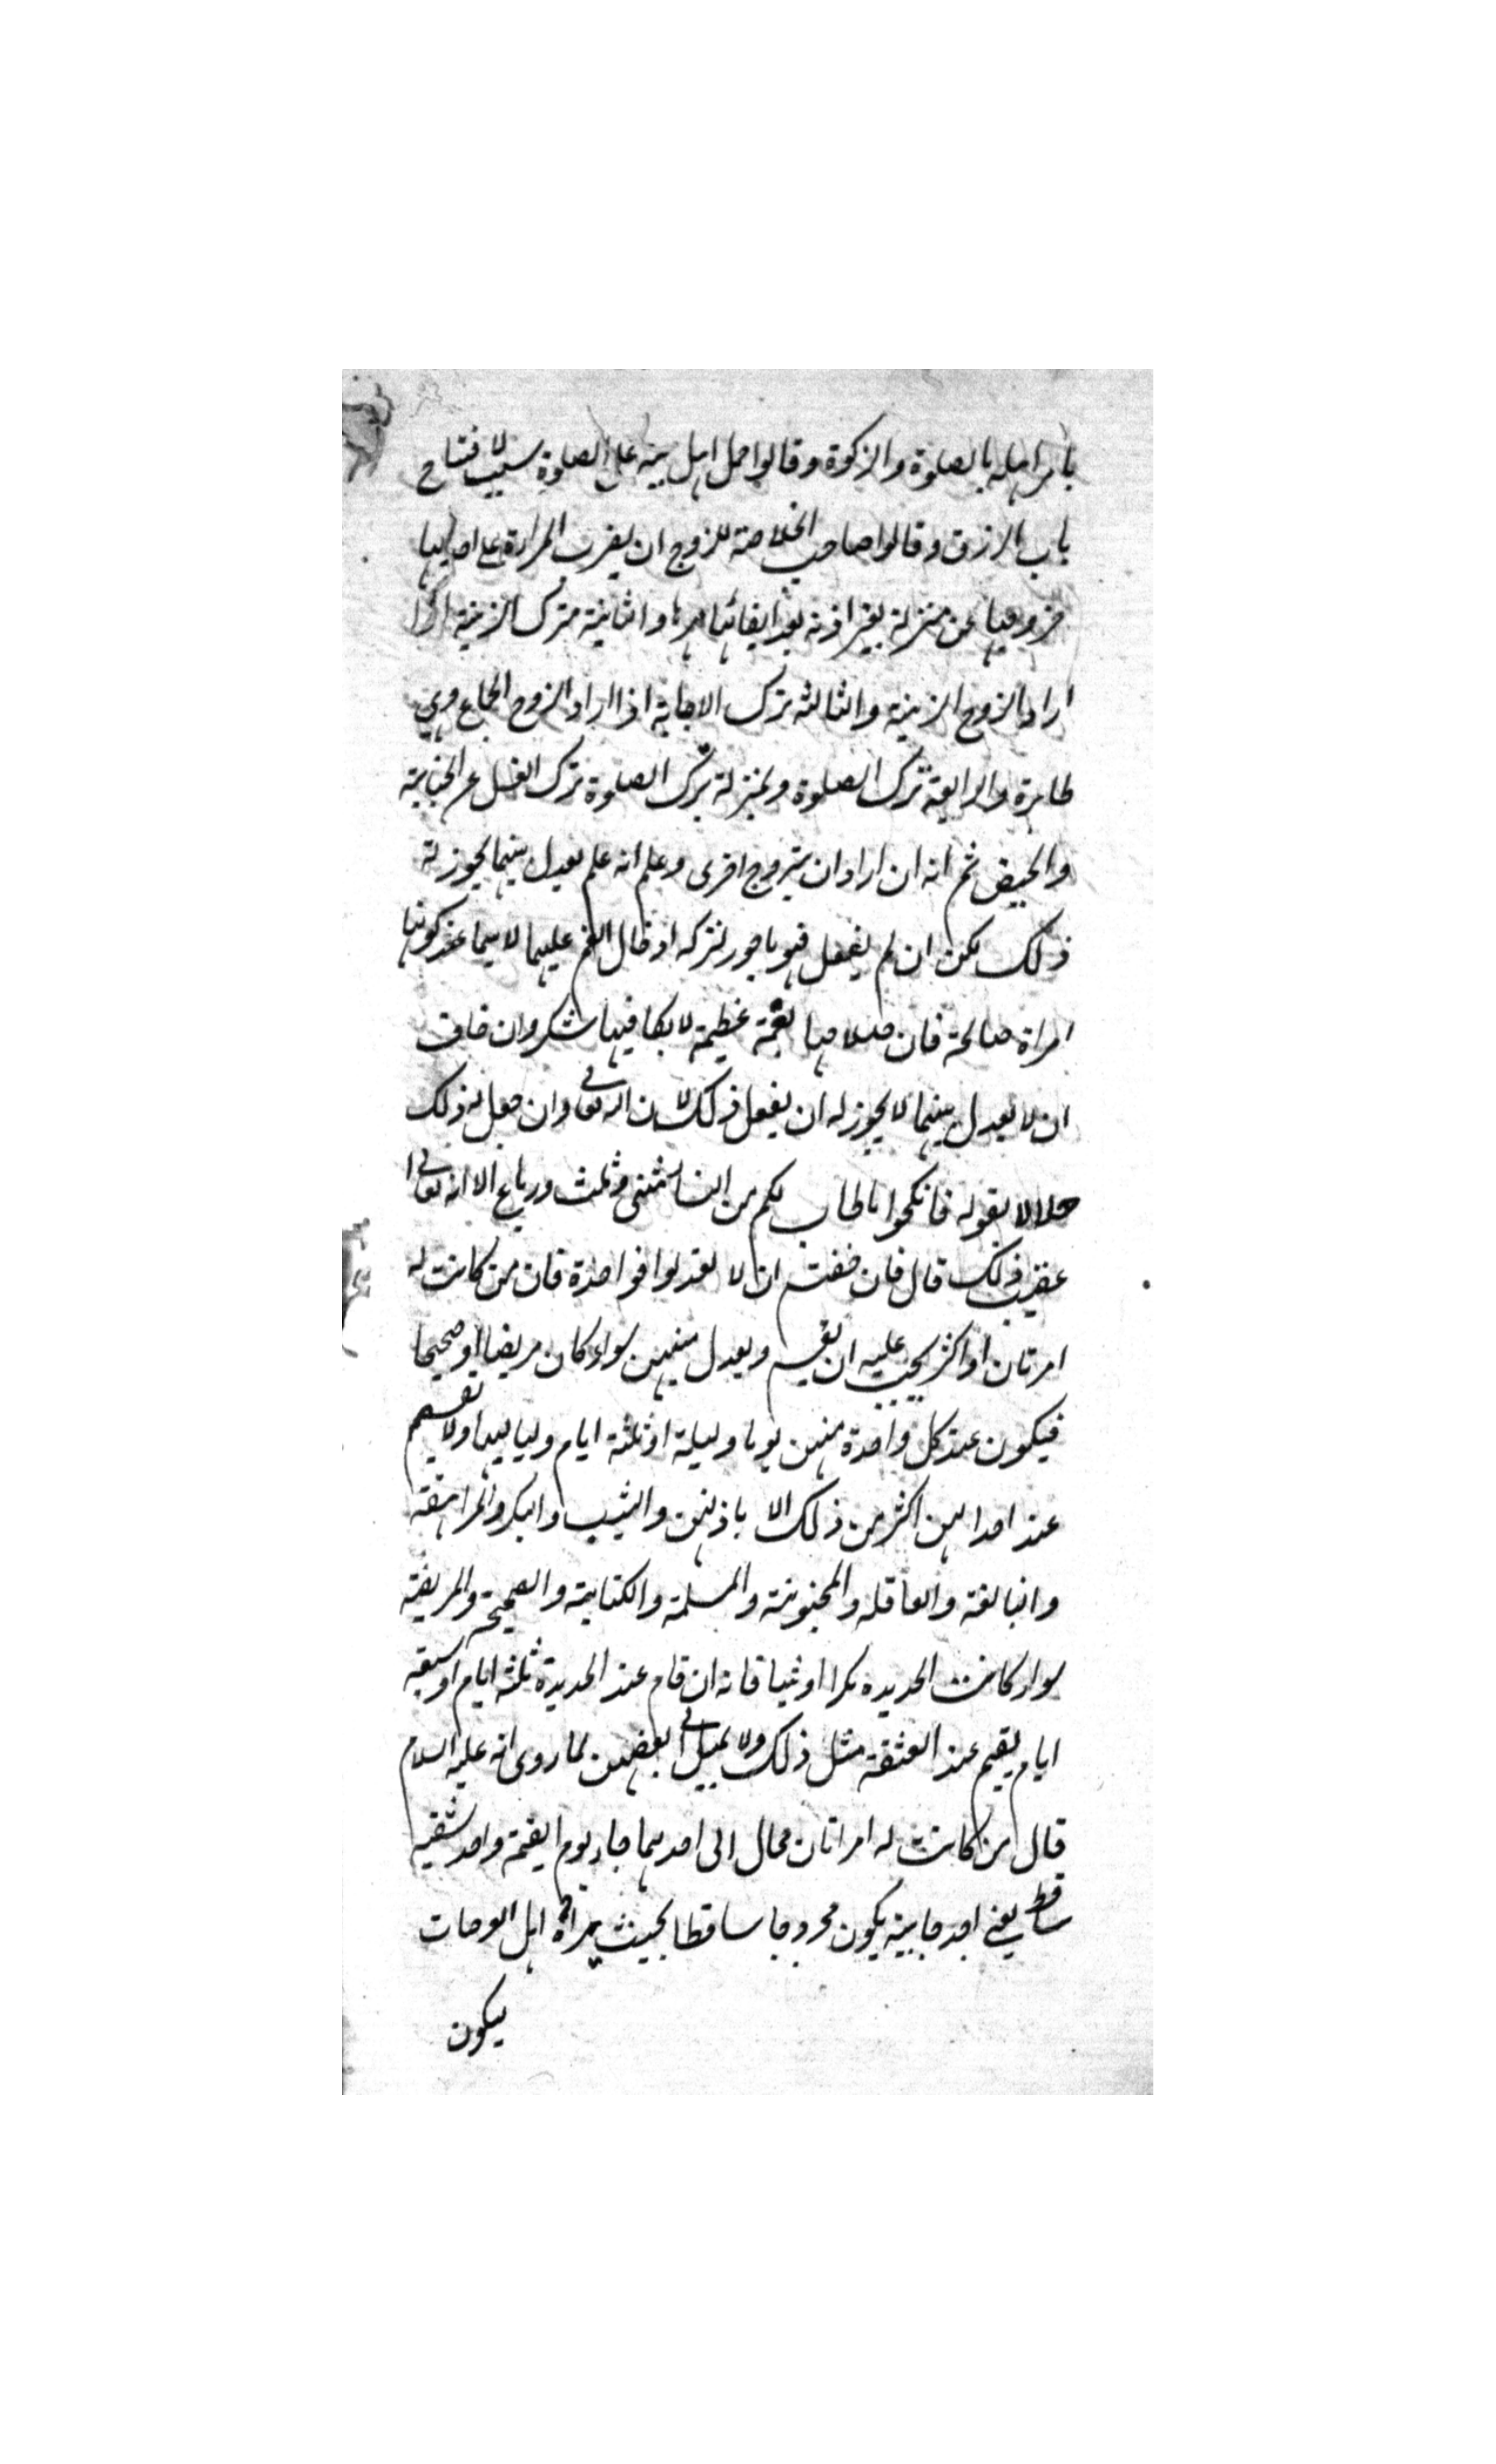 يأمر اهله بالصلوة والزكوة وقالوا حمل اهل بيته على الصلوة سبب لافتتاح
باب الرزق وقالوا صاحب الخلاصة للزوج ان يضرب المراءة على احديها
خروجها عن منزله بغير اذنه بعد ايفائها مهرها والثانية ترك الزينة اذا
اراد الزوج الزينة والثالثه ترك الاجابة اذا اراد الزوج الجماع وهى
طاهرة والرابعة ترك الصلوة وبمنزلة ترك الصلوة ترك الغسل عن الجنابة
والحيض ثم انه ان اراد ان يتزوج اخرى وعلم انه علم يعدل بينهما يجوز له
ذلك لكن ان لم يفعل فهو ماجور لتركه ادخال الغم عليها لا سيما عند كونها
امراة صالحة فان صلاحها نعمة عظيمة لا يكافيها شكر وان خاف
ان لا يعدل بينهما لا يجوز له ان يفعل ذلك لان الله تعالى وان جعل له ذلك
حلالا بقوله فانكحوا ما طاب لكم من النساء مثنى وثلث ورباع الا انه تعالى
عقيب ذلك قال فان خفتم ان لا تعدلوا فواحدة فان من كانت له
امرتان او اكثر يجب عليه ان يقسم ويعدل بينهن سواء كان مريضا او صحيحا
فيكون عند كل واحدة منهن يوما وليلة او ثلثة ايام ولياليها ولا يقيم
عند احداهن اكثر من ذلك الا باذنهن والثيب والبكر والمراهقة
والبالغة والعاقله والمجنونة والمسلمة والكتابية والصحيحة والمريضة
سواء كانت الجديده بكرا او ثيبا فانه ان قام عند الجديدة ثلثة ايام او سبعة
ايام يقيم عند العتيقة مثل ذلك ولا يميل الى بعضهن لما روى انه عليه السلام
قال من كانت له امراتان فمال الى احديهما جاء يوم القيمة واحد شقيه
ساقط يعنى احد جانبيه يكون مجروحا ساقطا بحيث يراه اهل العرصات
ليكون